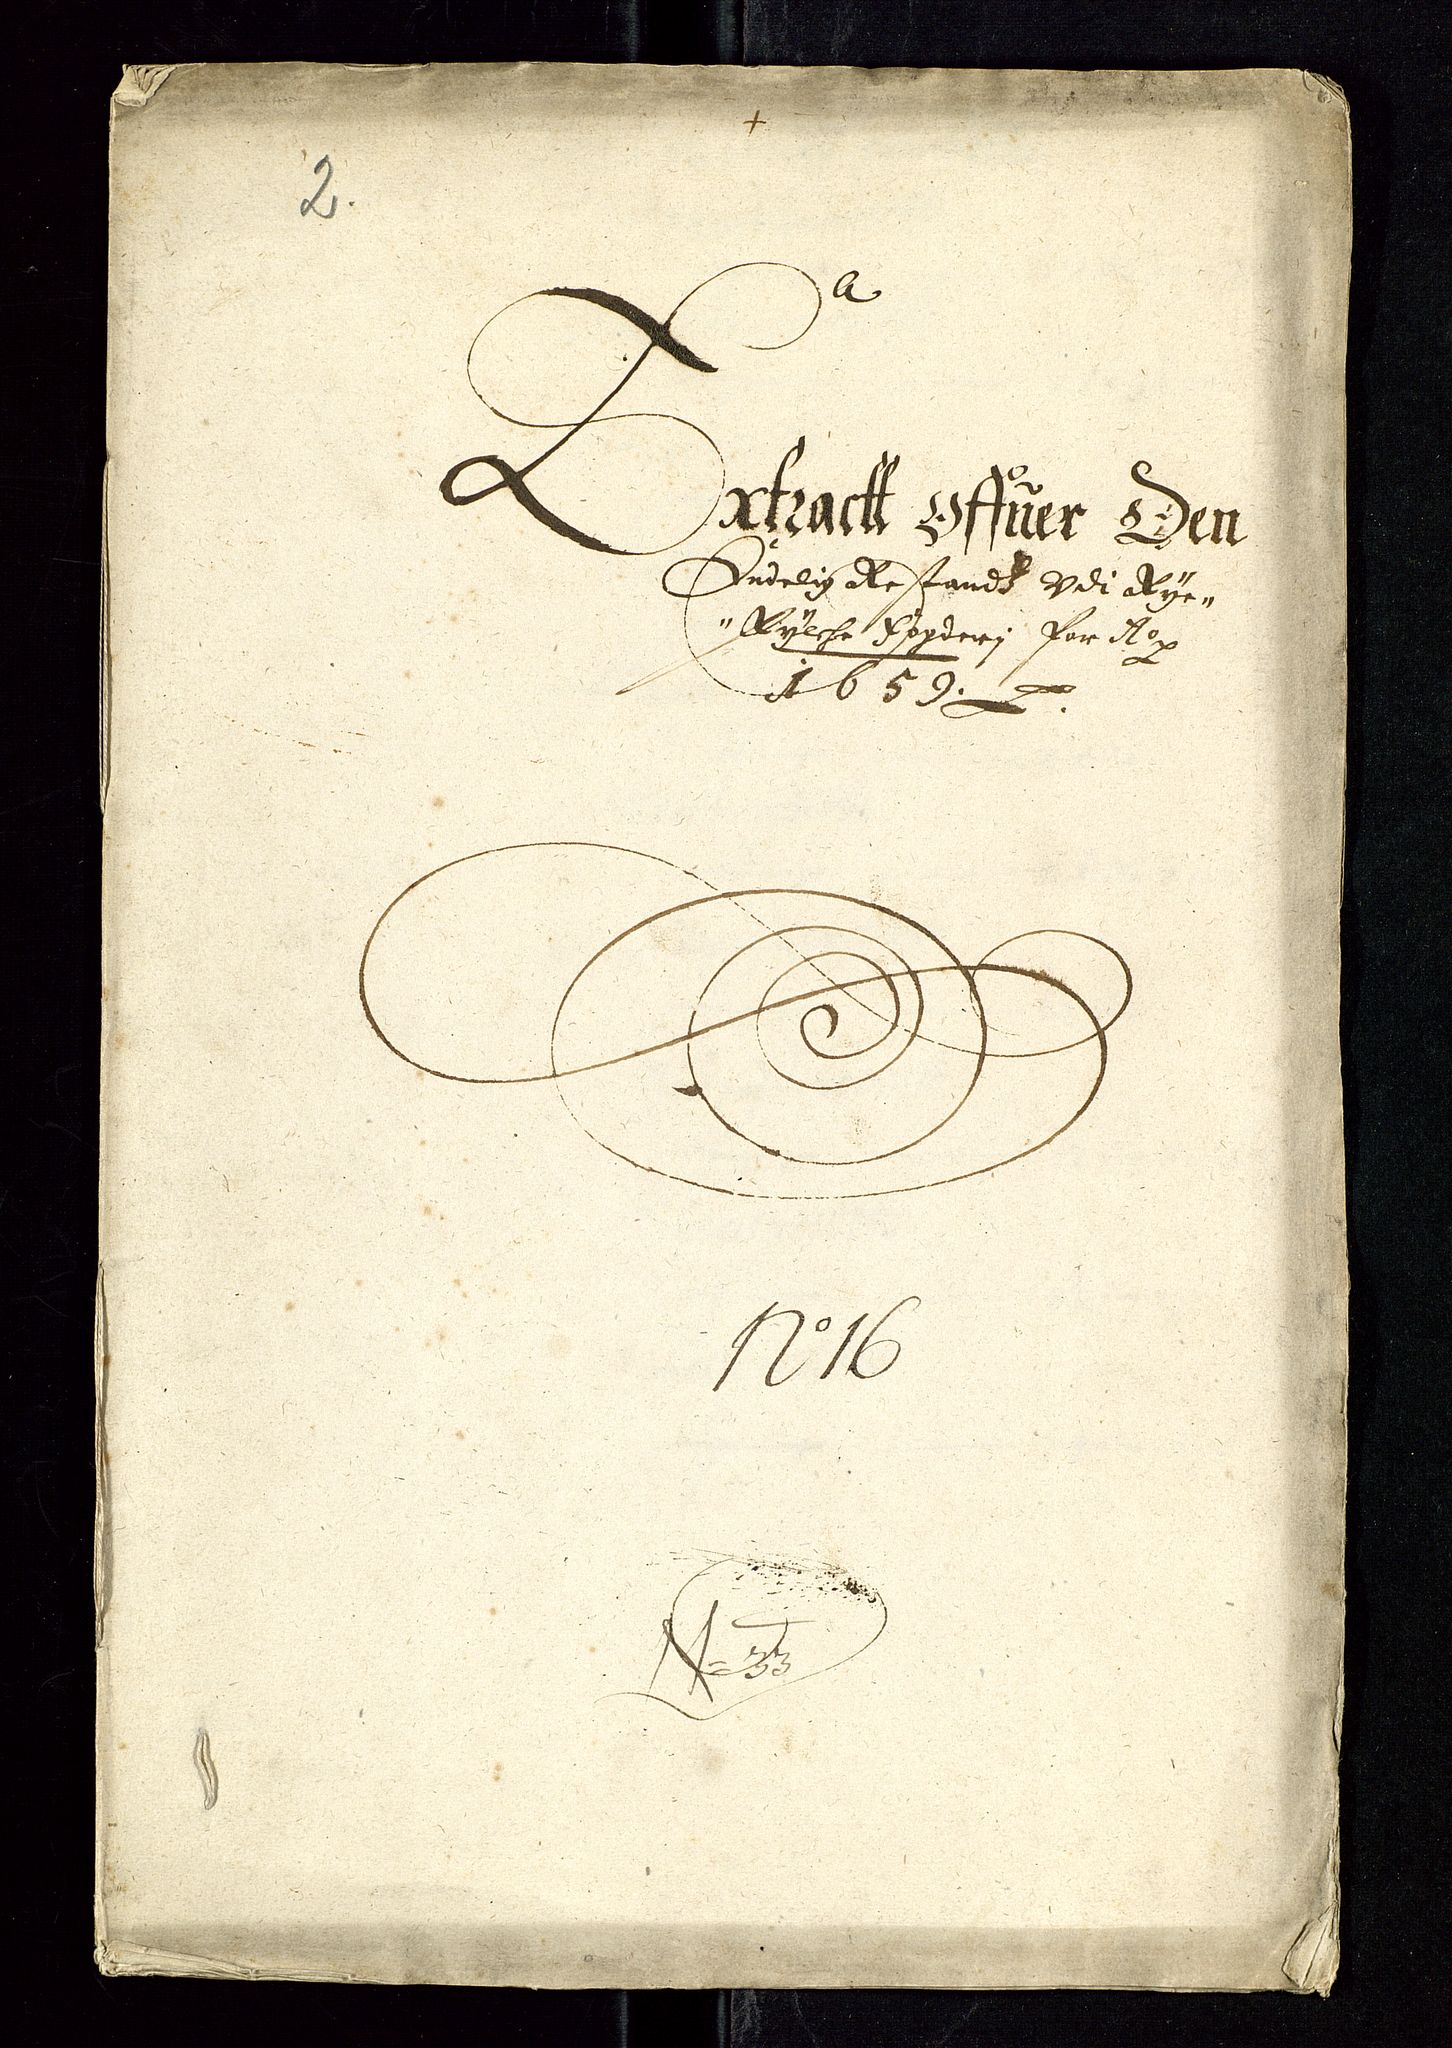 +
2.
a
Extractt offuer Den
Endelig Restandtz Vdi Rye„
„Fylche Fogderj for Ao
1659.
No 16
N = 33